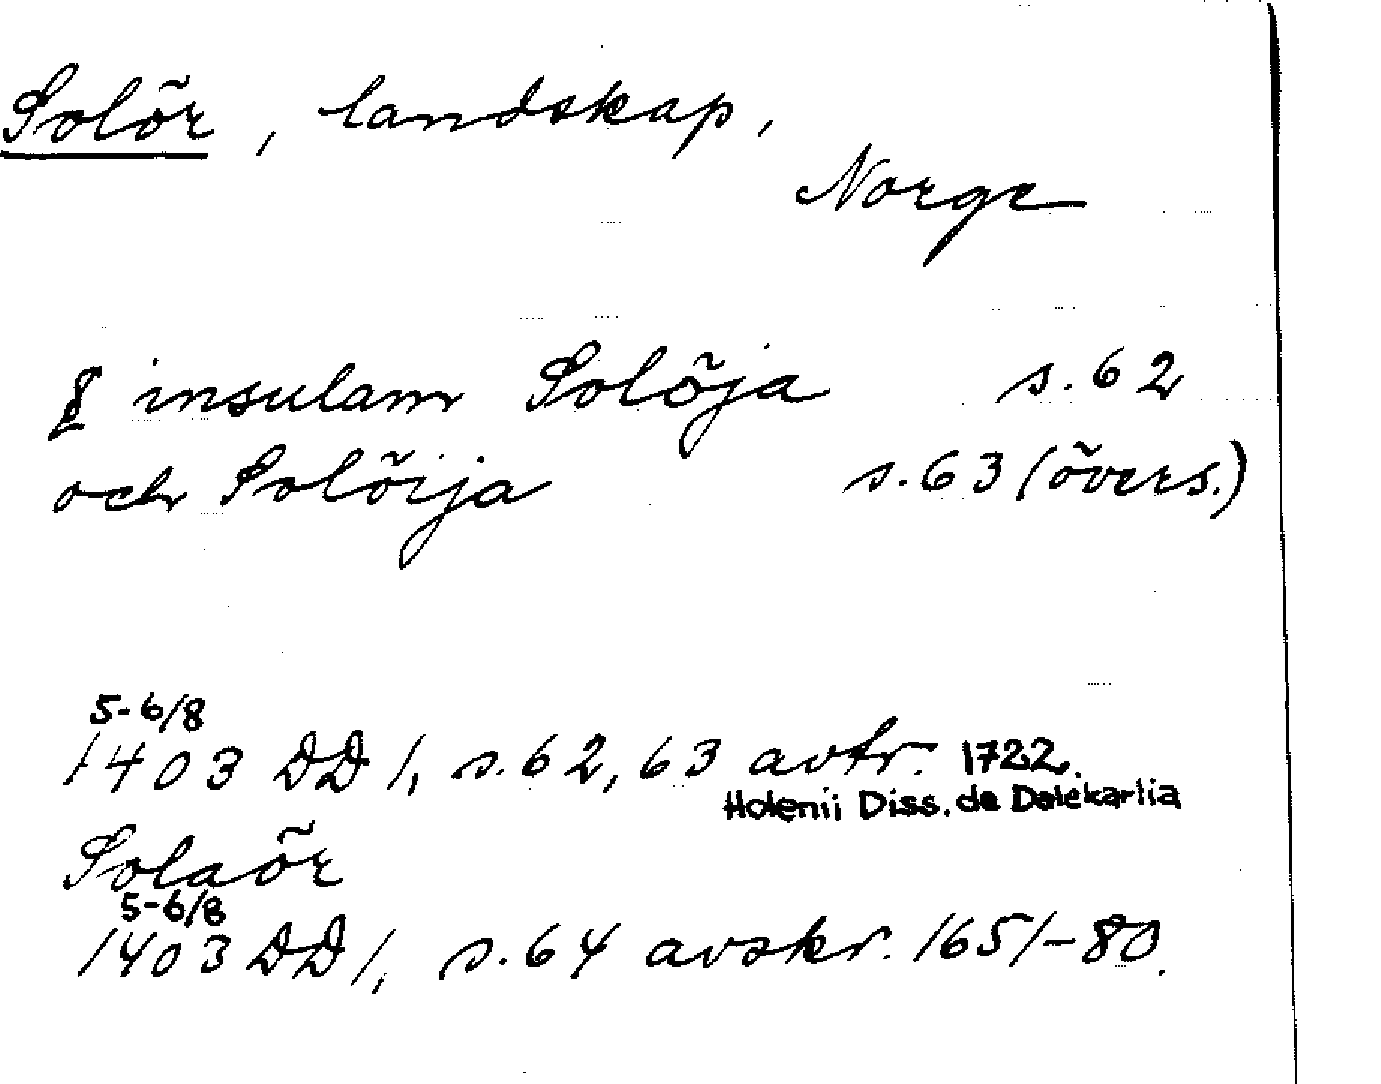 Solör, landskap,
Norge
insulam Solöja s.62
och Solöija s.63 (övers.)
5-6/8
1403 DD 1, s.62, 63 avtr. 1722.
Holenii Diss. de Dalekarlia
Solaör
5-6/8
1403 DD 1, s.64 avskr. 1651-80.